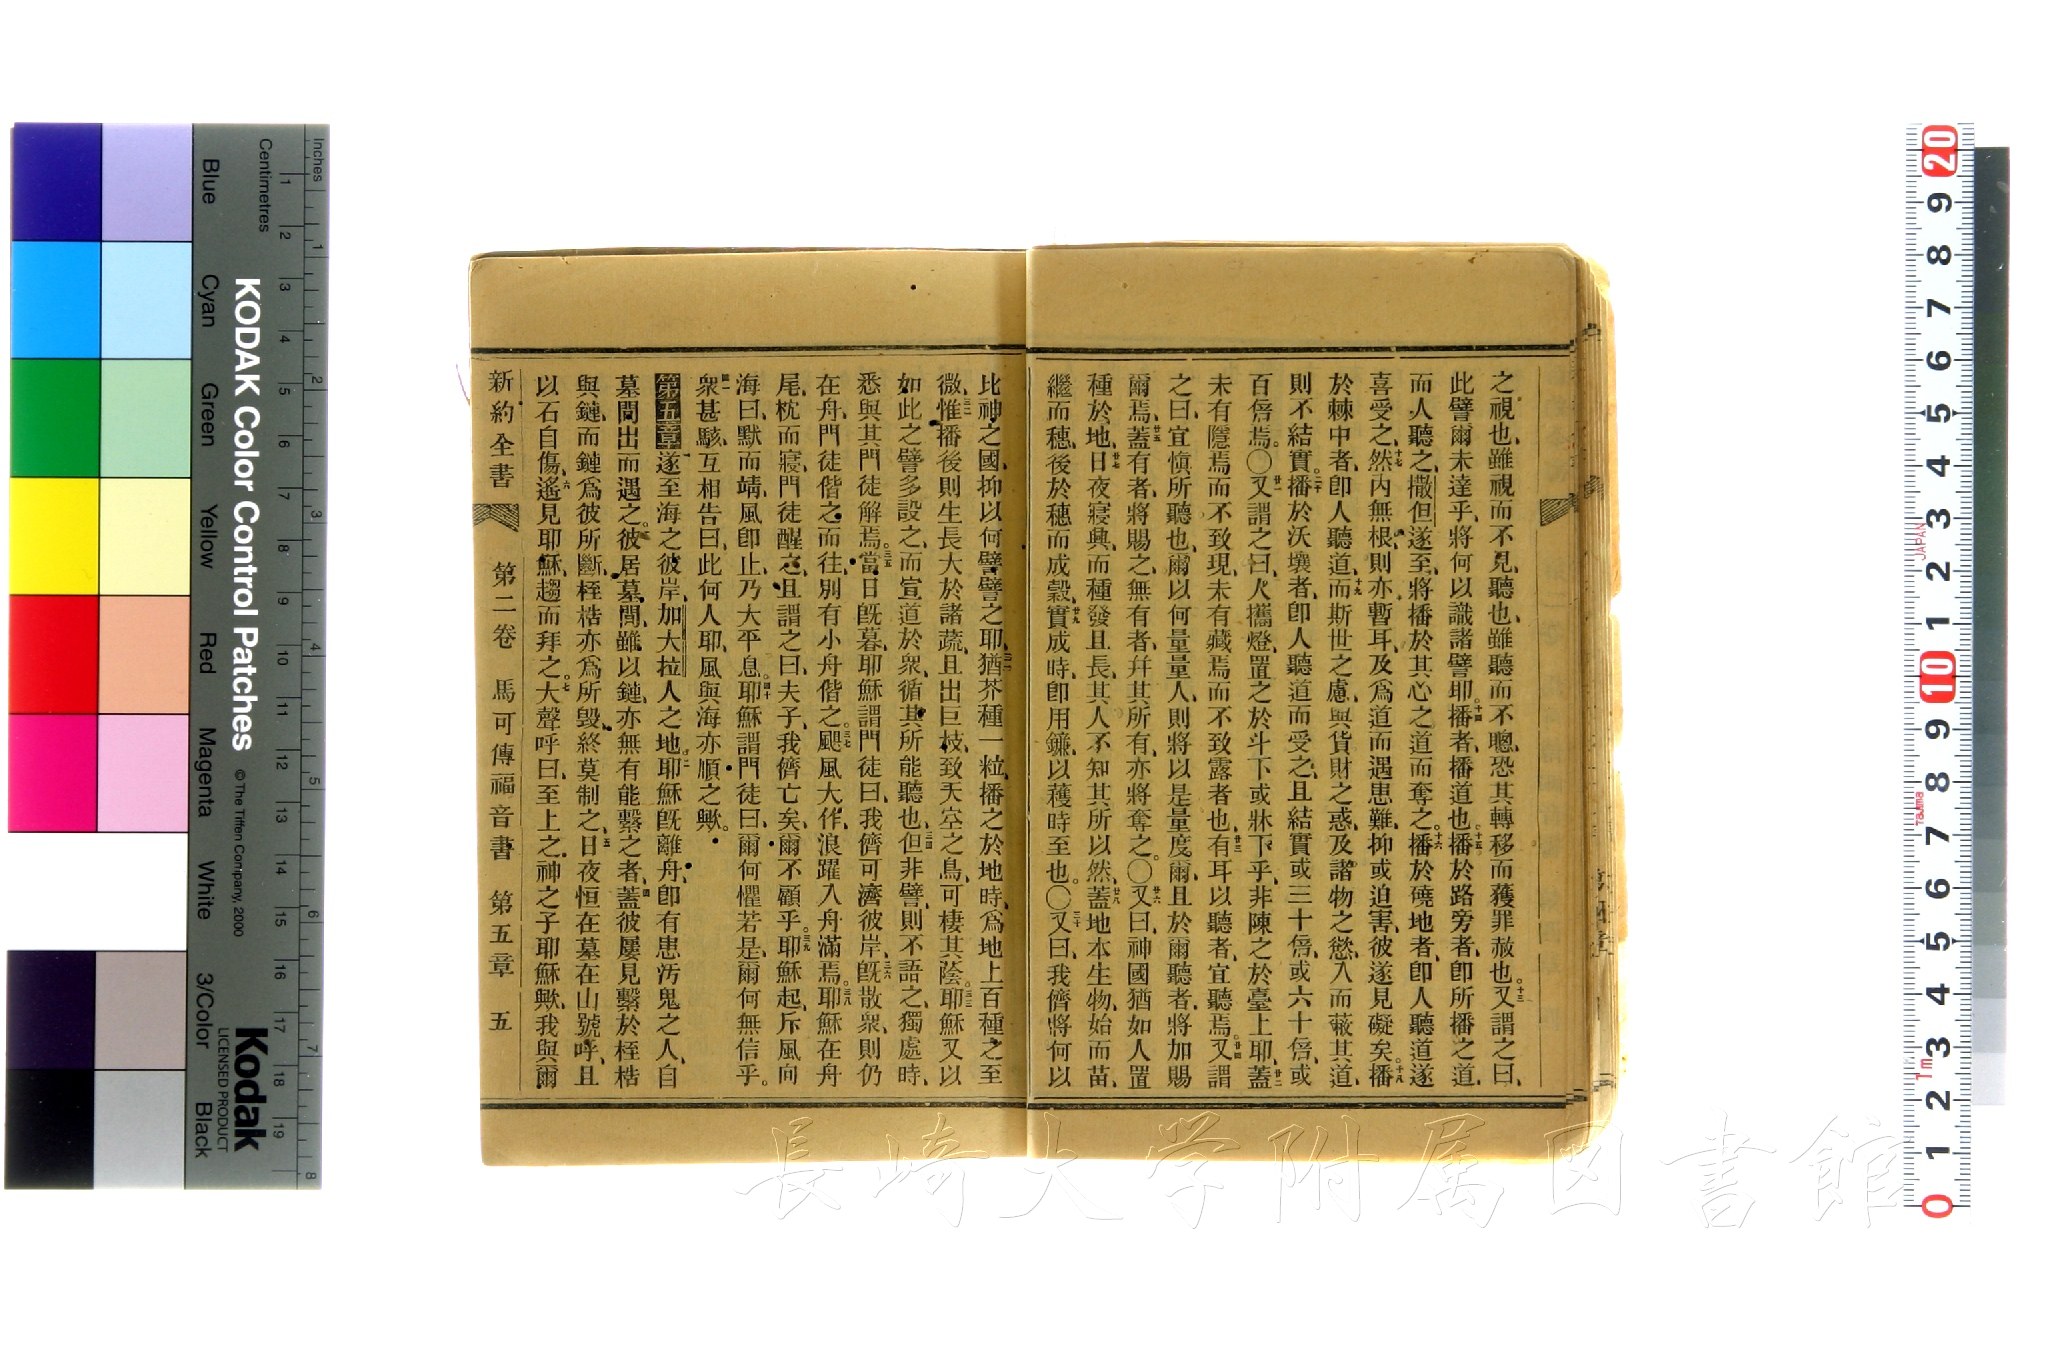 之視也、雖視而不見、聽也、雖聽而不聰、恐其轉移而獲罪赦也。十三又謂之曰、
此譬爾未達乎、將何以識諸譬耶。十四播者、播道也。十五播於路旁者、卽所播之道、
而人聽之、撒但遂至、將播於其心之道而奪之。十六播於磽地者、卽人聽道遂
喜受之、十七然內無根、則亦暫耳、及爲道而遇患難、抑或迫害、彼遂見礙矣。十八播
於棘中者、卽人聽道、十九而斯世之慮、與貨財之惑、及諸物之慾、入而蔽其道、
則不結實。二十播於沃壤者、卽人聽道而受之、且結實、或三十倍、或六十倍、或
百倍焉。〇廿一又謂之曰、人攜燈、置之於斗下或牀下乎、非陳之於臺上耶、廿二蓋
未有隱焉而不致現、未有藏焉而不致露者也、廿三有耳以聽者、宜聽焉。廿四又謂
之曰、宜愼所聽也、爾以何量量人、則將以是量度爾、且於爾聽者、將加賜
爾焉、廿五蓋有者、將賜之、無有者、幷其所有、亦將奪之。〇廿六又曰、神國猶如人置
種於地、廿七日夜寢興、而種發且長、其人不知其所以然、廿八蓋地本生物、始而苗、
繼而穗、後於穗而成穀、廿九實成時、卽用鐮、以穫時至也。〇三十又曰、我儕將何以
比神之國、抑以何譬譬之耶、三一猶芥種一粒、播之於地時、爲地上百種之至
微、三二惟播後則生長大於諸蔬、且出巨枝、致天空之鳥、可棲其陰。三三耶穌又以
如此之譬多設之、而宣道於衆、循其所能聽也、三四但非譬、則不語之、獨處時、
悉與其門徒解焉。三五當日旣暮、耶穌謂門徒曰、我儕可濟彼岸、三六旣散衆、則仍
在舟、門徒偕之而往、別有小舟偕之。三七颶風大作、浪躍入舟滿焉。三八耶穌在舟
尾、枕而寢、門徒醒之、且謂之曰、夫子、我儕亡矣、爾不顧乎。三九耶穌起、斥風向
海曰、默而靖、風卽止、乃大平息。四十耶穌謂門徒曰、爾何懼若是、爾何無信乎。
四一衆甚駭、互相告曰、此何人耶、風與海亦順之歟。
第五章 一遂至海之彼岸、加大拉人之地、二耶穌旣離舟、卽有患污鬼之人、自
墓間出而遇之。三彼居墓間、雖以鏈、亦無有能繫之者、四蓋彼屢見繫於桎梏
與鏈、而鏈爲彼所斷、桎梏亦爲所毀、終莫制之、五日夜恒在墓在山號呼、且
以石自傷、六遙見耶穌、趨而拜之。七大聲呼曰、至上之神之子耶穌歟、我與爾
新約全書 第二卷 馬可傳福音書 第五章 五
長崎大学附属図書館
KODAK Color Control Patches
© The Tiffen Company, 2000
Kodak
LICENSED PRODUCT
Inches
Centimetres
Blue Cyan Green Yellow Red Magenta White 3/Color Black
1 2 3 4 5 6 7 8 9 10 11 12 13 14 15 16 17 18 19
1 2 3 4 5 6 7 8
20 9 8 7 6 5 4 3 2 1 10 9 8 7 6 5 4 3 2 1 0
JAPAN
Tajima
1m